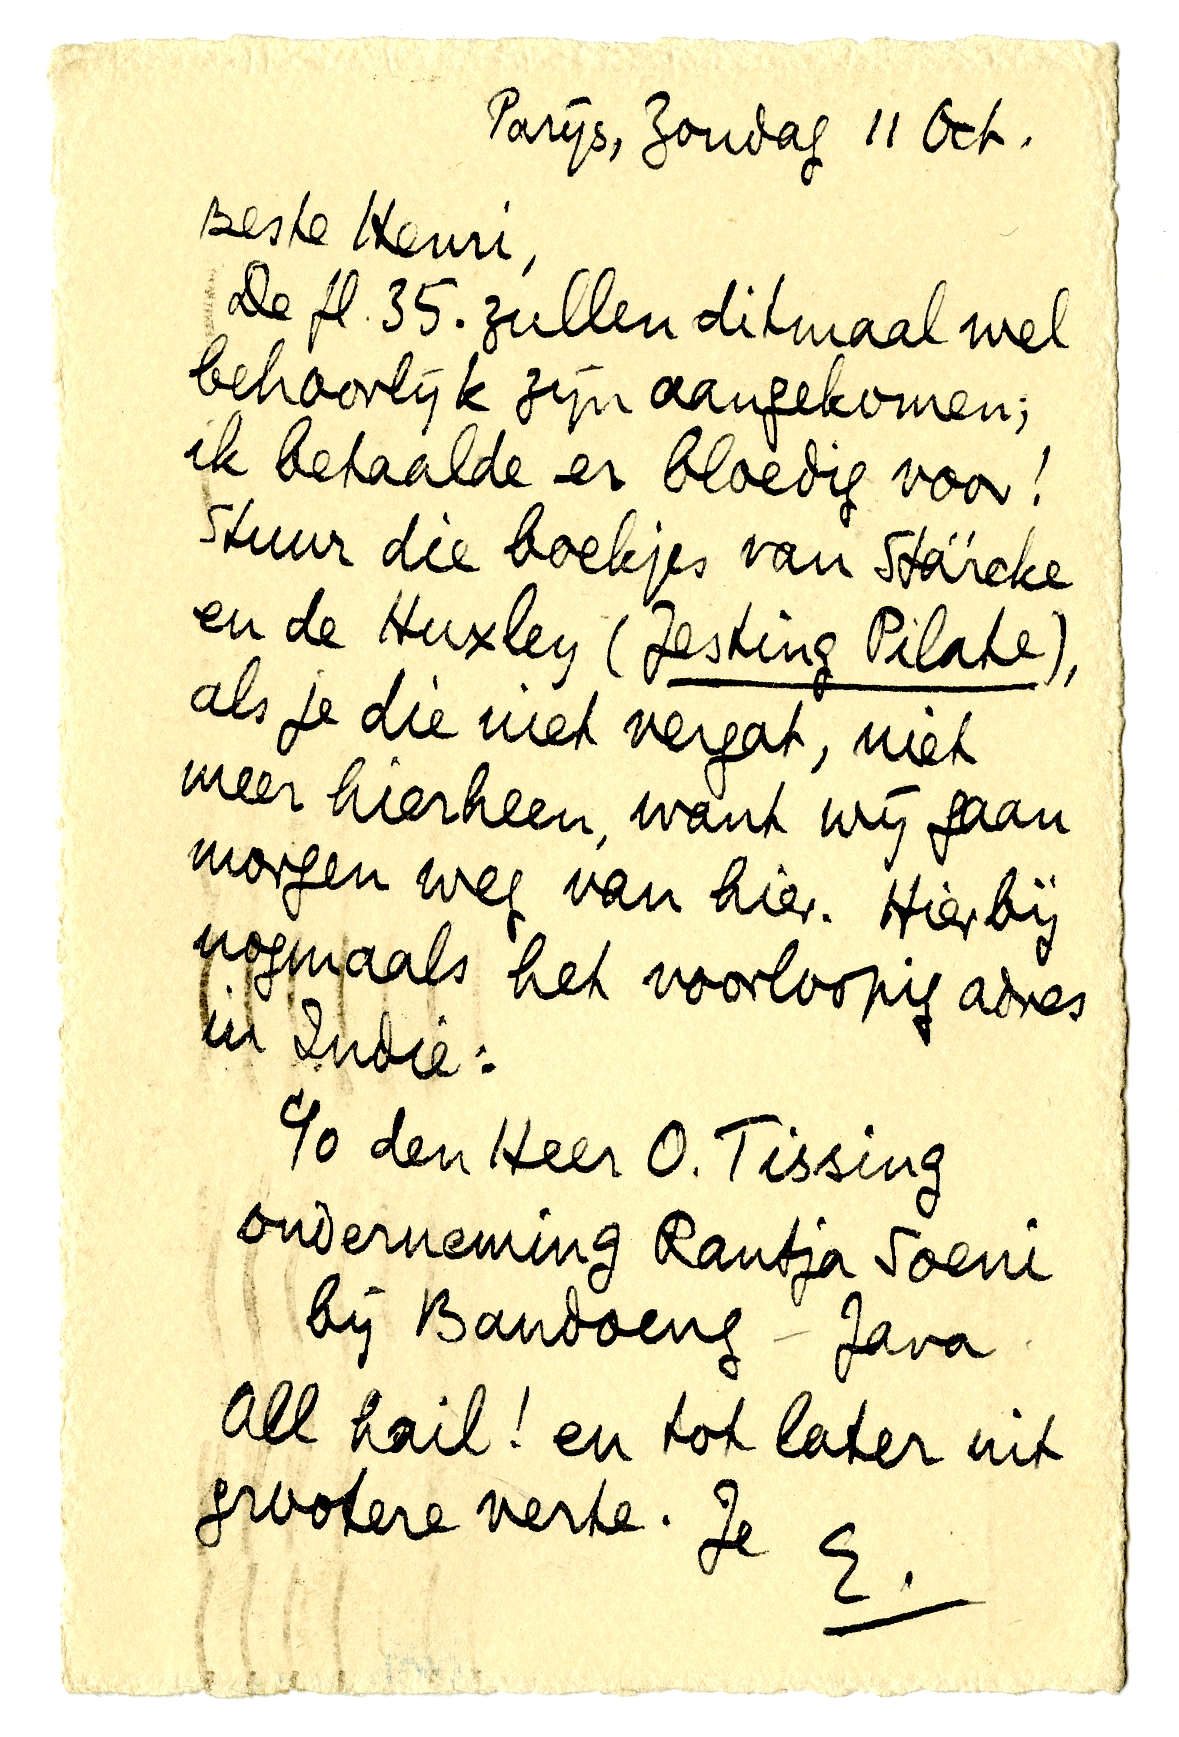 Parijs, Zondag 11 Oct.
Beste Henri,
De fl. 35. zullen ditmaal wel
behoorlijk zijn aangekomen;
ik betaalde er bloedig voor!
Stuur die boekjes van Stärcke
en de Huxley (Jesting Pilate),
als je die niet vergat, niet
meer hierheen, want wij gaan
morgen weg van hier. Hierbij
nogmaals het voorloopig adres
in Indië:
c/o den Heer O. Tissing
onderneming Rantja Soeni
bij Bandoeng - Java
All hail! en tot later uit
grootere verte. Je E.